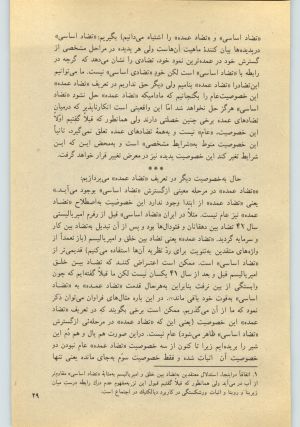 «تضاد اساسی» و «تضاد عمده» را اشتباه می‌دانیم) بگیریم: «تضاد اساسی»
در پدیده‌ها بیان کنندهٔ ماهیت آن‌هاست ولی هر پدیده در مراحل مشخصی از
گسترش خود در عمده‌ترین نمود خود، تضادی را نشان می‌دهد که گرچه در
رابطه با «تضاد اساسی» است لکن خود «تضاد اساسی» نیست. ما می‌توانیم
این تضاد را «تضاد عمده» بنامیم ولی دیگر حق نداریم در تعریف «تضاد عمده»
این خصوصیت عام را بگنجانیم که مادامیکه «تضاد عمده» حل نشود «تضاد
اساسی» هرگز حل نخواهد شد اما این واقعیتی است انکارناپذیر که درمیان
تضادهای عمده برخی چنین خصلتی دارند ولی همانطور که قبلاً گفتیم اولاً
این خصوصیت، «عام» نیست و به همهٔ تضادهای عمده تعلق نمی‌گیرد، ثانیاً
این خصوصیت منوط به «شرایط مشخصی» است و به محض این که این
شرایط تغیر کند این خصوصیت پدیده نیز در معرض تغییر قرار خواهد گرفت.
***
حال به خصوصیت دیگر در تعریف «تضاد عمده» می‌پردازیم:
««تضاد عمده» در مرحله معینی از گسترش «تضاد اساسی» بوجود می‌آید.»
یعنی «تضاد عمده» از ابتدا وجود ندارد این خصوصیت به اصطلاح «تضاد
عمده» نیز عام نیست. مثلاً در ایران «تضاد اساسی» قبل از رفرم امپریالیستی
سال ۴۲ تضاد بین دهقانان و فئودال‌ها بود و پس از آن تبدیل به تضاد بین کار
و سرمایه گردید. «تضاد عمده» یعنی تضاد بین خلق و امپریالیسم (باز تعمداً از
واژه‌های معتقدین به تئویت برای رد نظریه آن‌ها استفاده می‌کنیم) قدیمی‌تر از
«تضاد اساسی» است. ممکن است اعتراض کنند که تضاد بین خلق و
امپریالیسم قبل و بعد از سال ۴۱ یکسان نیست لکن ما قبلاً گفته‌ایم که چون
وابستگی از بین نرفت بنابراین به هرحال قدمت «تضاد عمده» به «تضاد
اساسی» به قوت خود باقی ماند، ۱. در این باره مثال‌های فراوان می‌توان ذکر
نمود که ما از آن می‌گذریم. ممکن است برخی بگویند که در تعریف «تضاد
عمده» این خصوصیت (یعنی این که «تضاد عمده» در مرحله‌ئی از گسترش
«تضاد اساسی» ظاهر می‌شود) عام نیست. دراین صورت هم یال و هم دُم این
شیر را بریده‌ایم زیرا تا کنون از سه خصوصیت «تضاد عمده» عام نبودن دو
خصوصیت آن اثبات شده و فقط خصوصیت سوّم به جای مانده یعنی تنها
۱. اتفاقاً دراینجا، استدلال معتقدین به تضاد بین خلق و امپریالیسم به مثابهٔ «تضاد اساسی» مقاوم‌تر
از آب در می‌آید ولی همانطور که قبلاً گفتیم قبول این تز به مفهوم عدم درک رابطه درست میان
زیربنا و روبنا و اثبات ورشکستگی در کاربرد دیالکتیک در اجتماع است.
۲۹